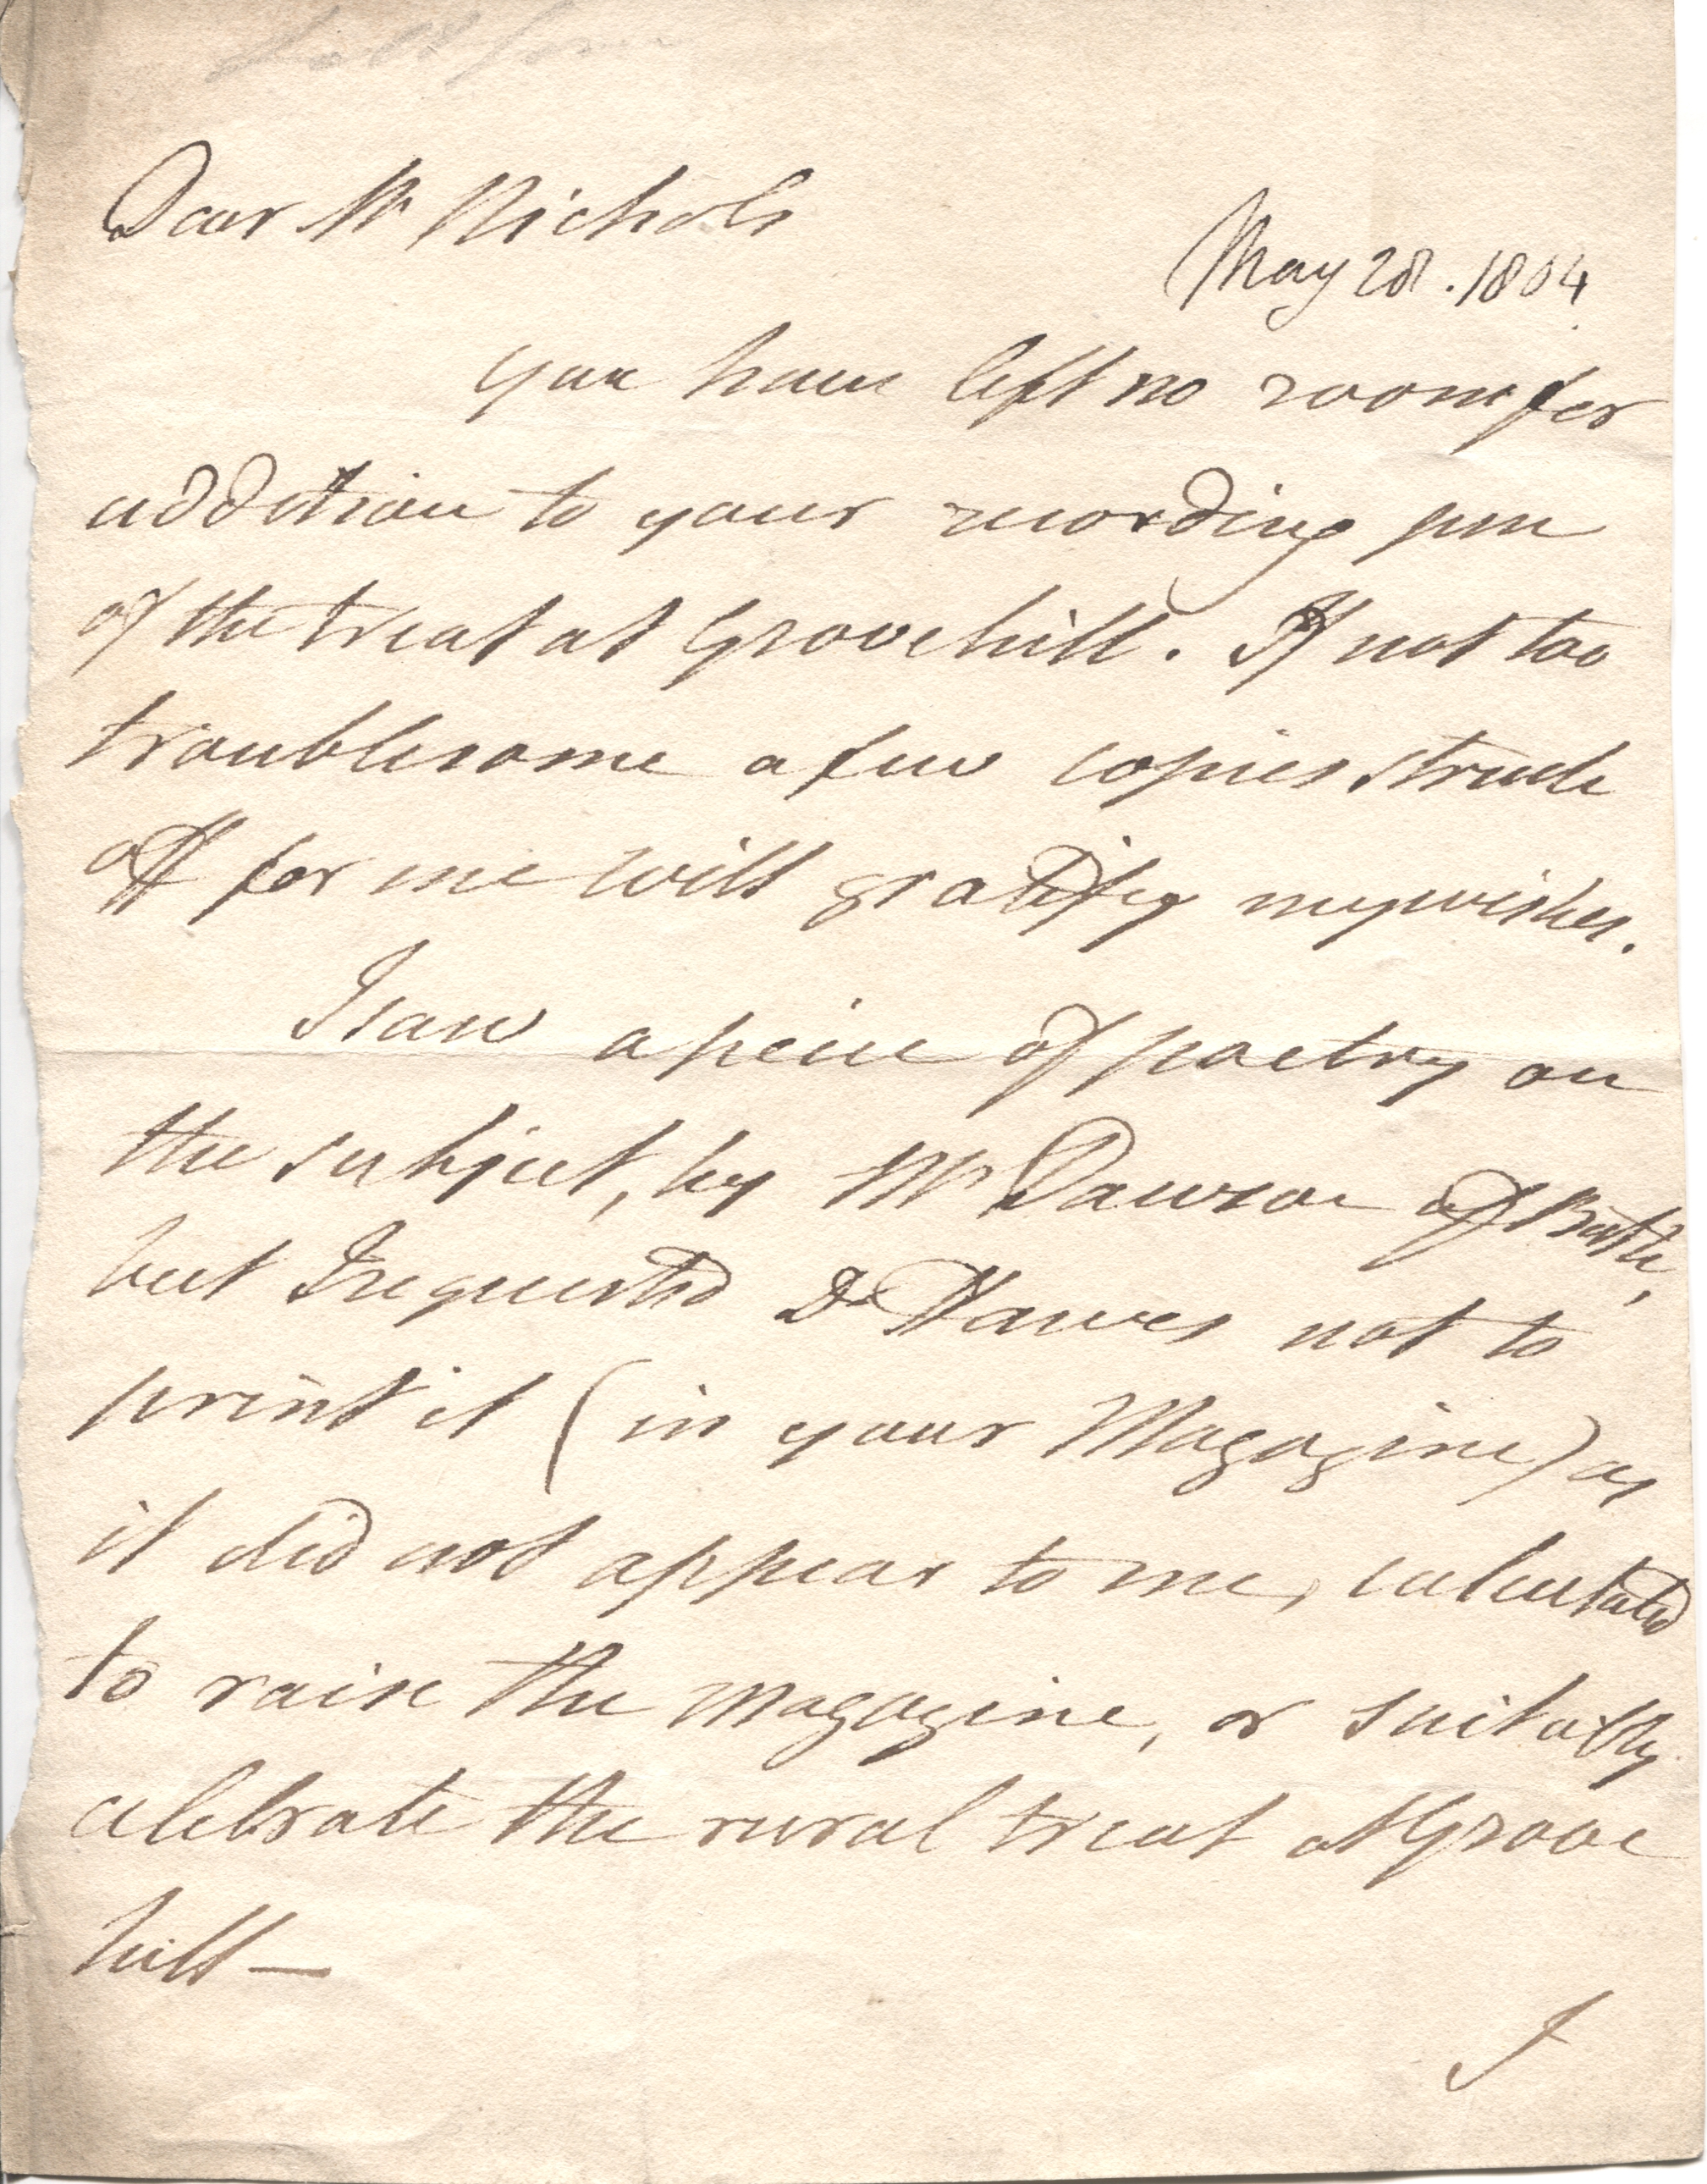 Dear Mr Nichols
May 28. 1804.
you have left no room for
addition to your recording pen
of the treat at Grovehill. If not too
troublesome a few copies struck
off for me will gratify my wishes.
I saw a peice of poetry on
the subject, by Mr Dawson of Bath,
but I requested Dr Hawes not to
print it (in your Magazine) as
it did not appear to me, calculated
to raise the magazine, or suitably
celebrate the rural treat at Grove
hill —
I